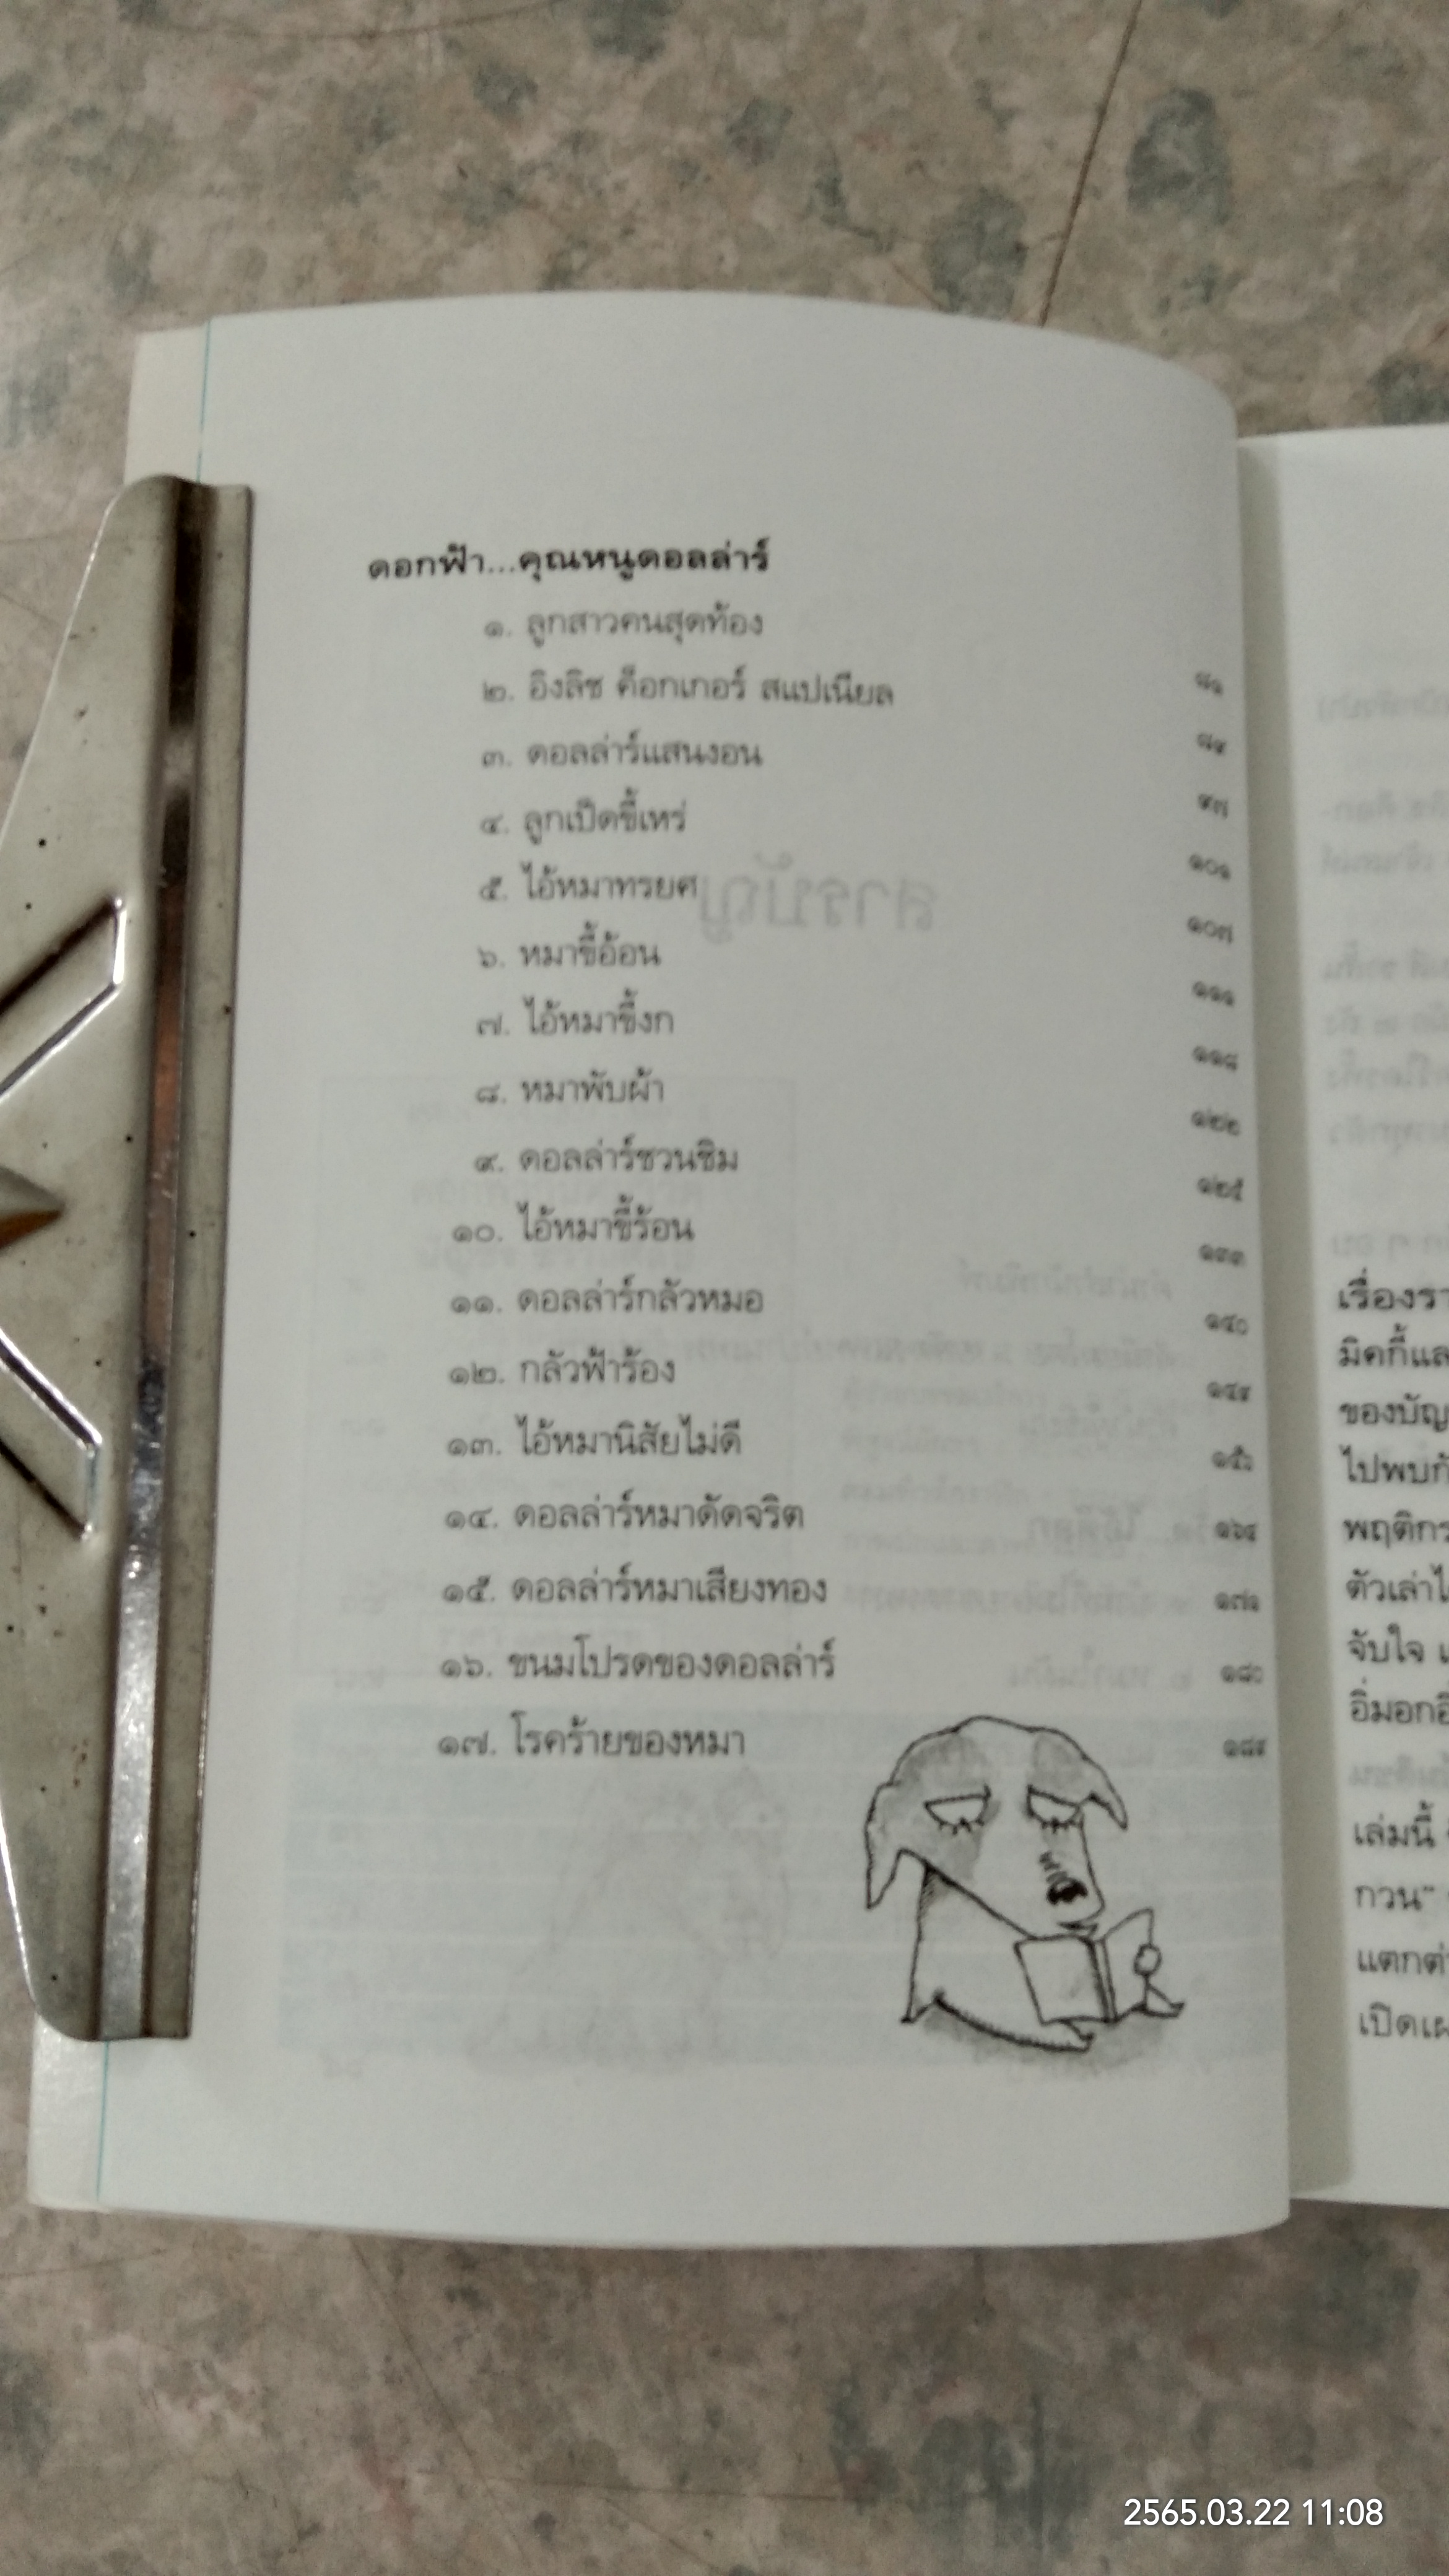 ดอกฟ้า...คุณหนูดอลล่าร์
๑. ลูกสาวคนสุดท้อง ๘๑
๒. อิงลิช ค็อกเกอร์ สแปเนียล
๓. ดอลล่าร์แสนงอน ๙๗
๔. ลูกเป็ดขี้เหร่ ๑๐๑
๕. ไอ้หมาทรยศ ๑๐๗
๖. หมาขี้อ้อน ๑๑๑
๗. ไอ้หมาขี้งก ๑๑๘
๘. หมาพับผ้า ๑๒๒
๙. ดอลล่าร์ชวนชิม ๑๒๕
๑๐. ไอ้หมาขี้ร้อน ๑๓๓
๑๑. ดอลล่าร์กลัวหมอ
๑๒. กลัวฟ้าร้อง
๑๓. ไอ้หมานิสัยไม่ดี
๑๔. ดอลล่าร์หมาดัดจริต
๑๕. ดอลล่าร์หมาเสียงทอง ๑๗๑
๑๖. ขนมโปรดของดอลล่าร์ ๑๘๐
๑๗. โรคร้ายของหมา
มิดกี้แล
ของบัญ
ไปพบกั
พฤติกร
ตัวเล่าไ
จับใจ แ
อิ่มอกอิ
เล่มนี้
กวน"
แตกต่
เปิดเผ
2565.03.22 11:08